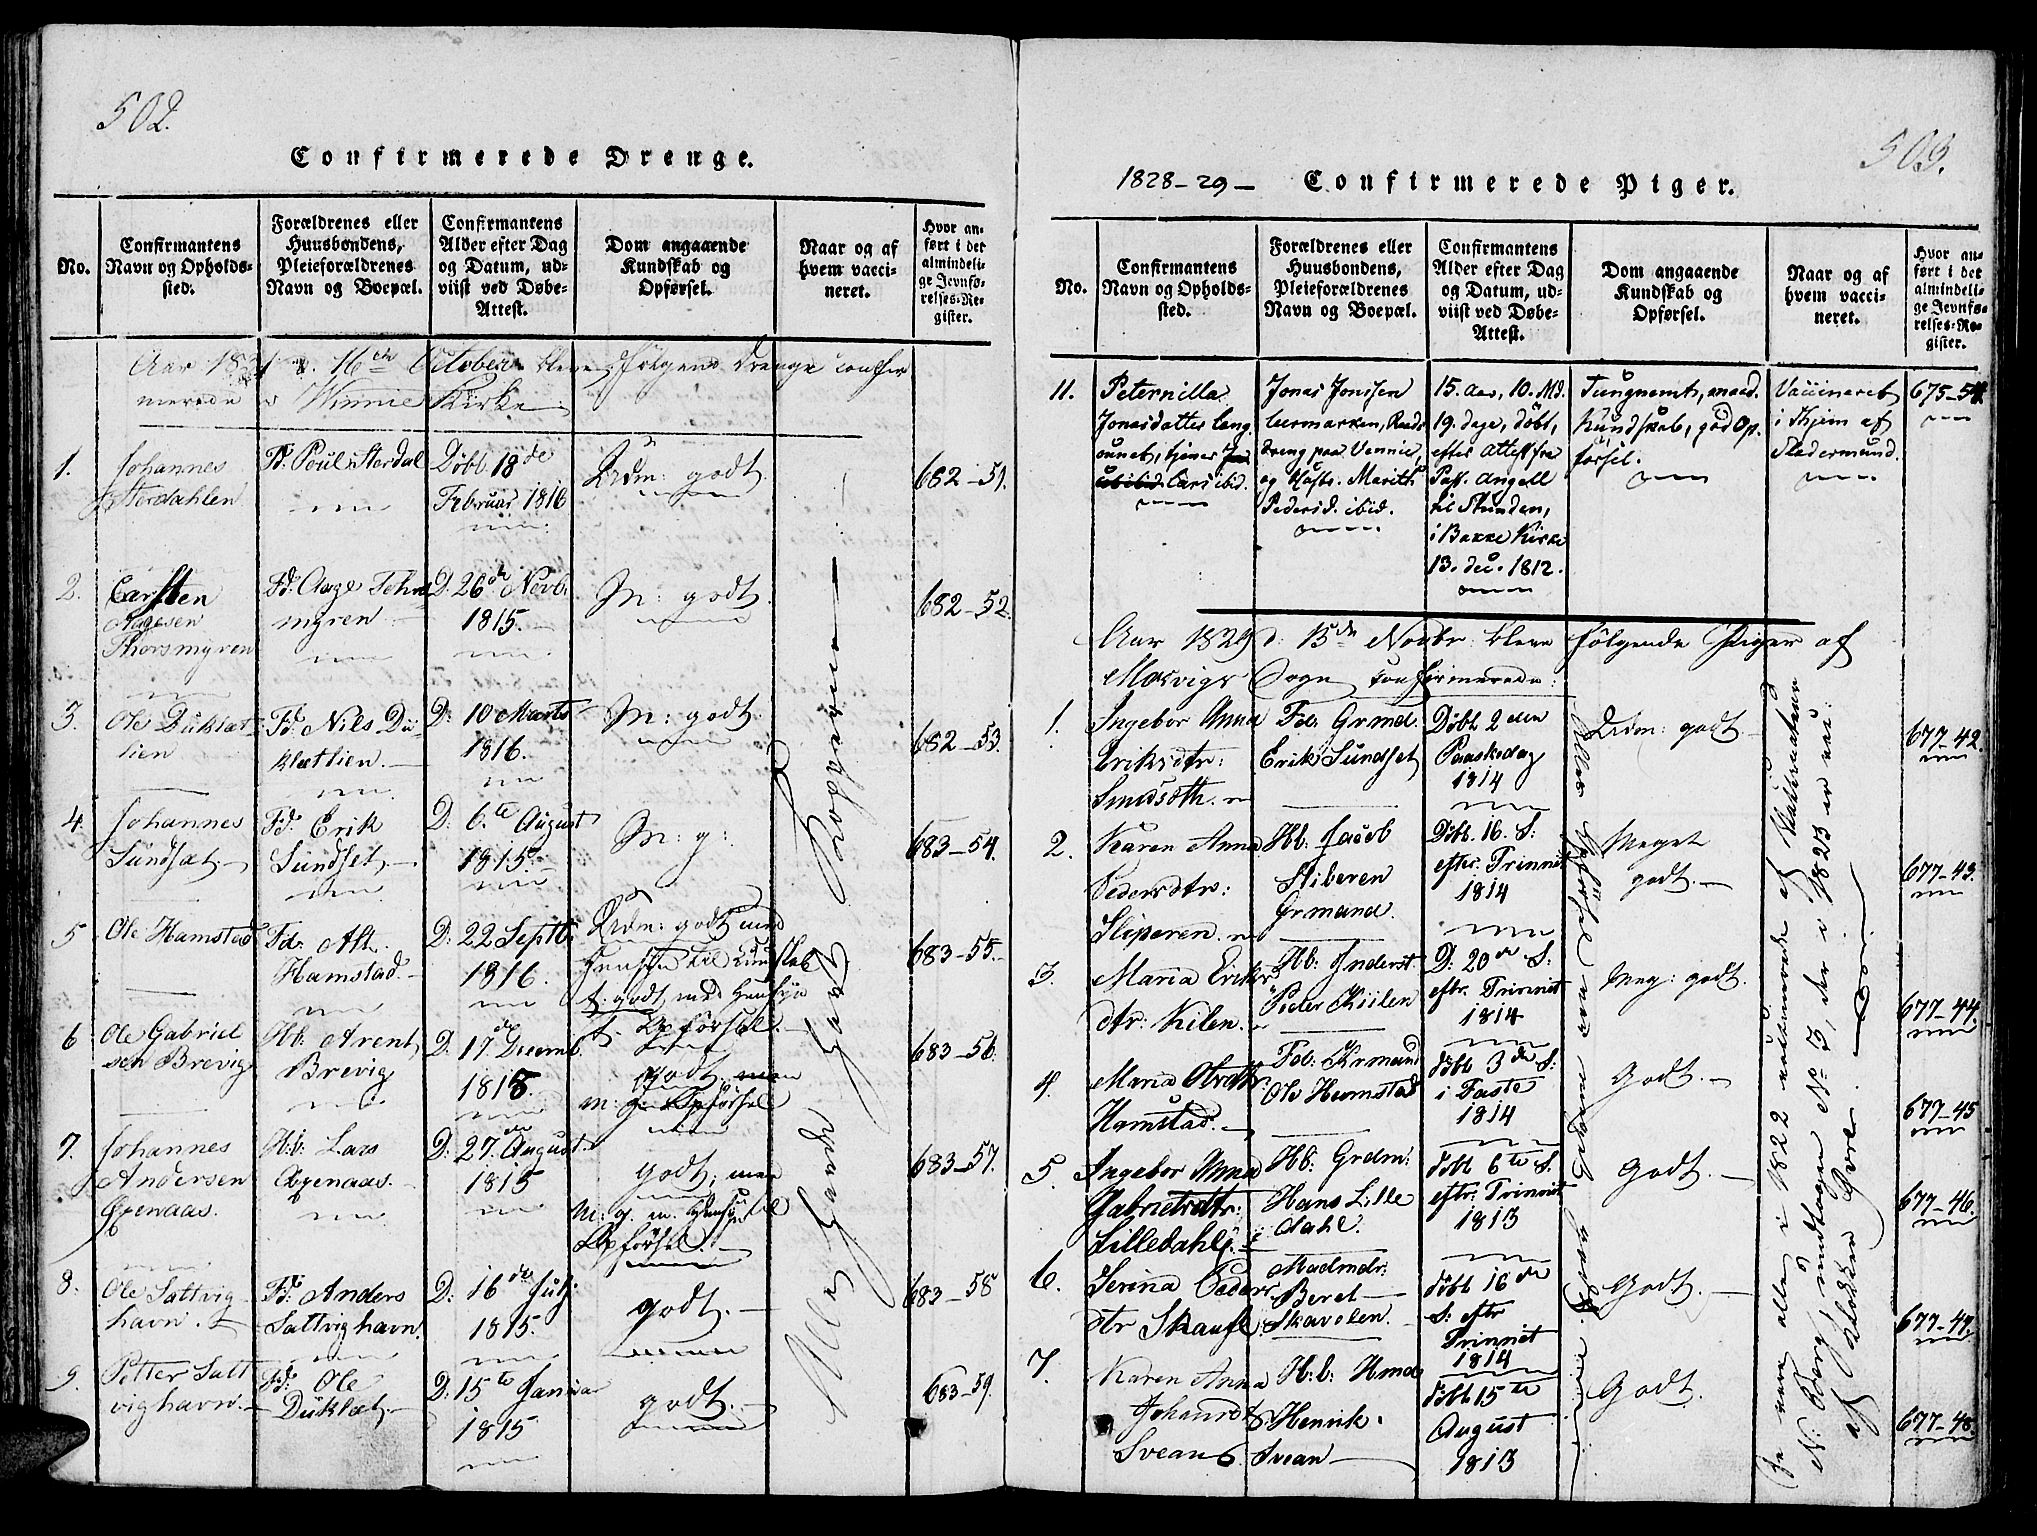 502.
Confirmerede Drenge.
No.
Confirmantens
Navn og Opholds-
sted.
Forældrenes eller
Huusbondens,
Pleieforældrenes
Navn og Boepæl.
Confirmantens
Alder efter Dag
og Datum, ud-
viist ved Døbe-
Attest.
Dom angaaende
Kundskab og
Opførsel.
Naar og af
hvem vacci-
neret.
Hvor an-
ført i det
almindeli-
ge Jevnfø-
relses-Re-
gister.
Aar 1831 d. 16de October bleve følgende Drenge confir
merede i Winnie Kirke
1.
Johannes
Stordahlen
Fd. Poul Stordal
Döbt 18de
Februar 1816
Udm: godt
682-51.
2.
Carsten
Aagesen
Thorsmyren
Fd. Aage
myren
D. 26de Novb.
1815.
M: godt.
682-52.
3.
Ole Duklæt
lien
Fd. Nils Du
klætlien.
D: 10 Marts
1816.
M: godt
682-53.
4.
Johannes
Sundsæt.
Fd. Erik
Sundset
D: 6.te August
1815.
M: g:
683-54.
5
Ole Hamstad
Fd. Alt.
Hamstad.
D: 22 Septb.
1816.
Udm: godt med
Hensyn til Kundskab
t. godt med Hensyn
t. Opförsel.
683-55.
6
Ole Gabriel
sen Brevig
Hb. Arent
Brevig
D. 17de Decemb.
1815.
Godt, men
m: g. Opförsel
683-56.
7.
Johannes
Andersen
Agenaas.
Hb. Lars
Agenaas.
D: 27de August
1815
godt, men
m: g. m. Hensyn til
Opförsel.
683-57.
8.
Ole Saltvig
havn.
Fd. Anders
Saltvighavn.
D: 16de July
1815.
godt.
683-58
9.
Petter Salt
vighavn.
Fd: Ole
Duklæt.
D: 15te Janua
1815
godt.
683-59.
503.
1828-29- Confirmerede Piger.
No.
Confirmantens
Navn og Opholds-
sted.
Forældrenes eller
Huusbondens,
Pleieforældrenes
Navn og Boepæl.
Confirmantens
Alder efter Dag
og Datum, ud-
viist ved Døbe-
Attest.
Dom angaaende
Kundskab og
Opførsel.
Naar og af
hvem vacci-
neret.
Hvor an-
ført i det
almindeli-
ge Jevnfø-
relses-Re-
gister.
11.
Peternilla
Jonasdatter
tjener
Lars ibid.
Jonas Jonssen
dreng paa Vennie,
og Marith
Pedersd. ibid.
15. Aar, 10. Md.
19. dage, döbt,
efter Attest fra
Past. Angell
til Stünden,
i Bakke Kirke
13. dec. 1812.
Tungnemt, maad.
Kundskab, god Op-
försel.
Vaccineret
i Thjem af
Fledermund.
675-54.
Aar 1829 d. 15de Novbr. bleve følgende Piger af
Mosvigs Sogn konfirmerede:
1.
Ingebor Anna
Eriksdtr:
Sundsæth.
Fd: Grmd.
Erik Sundset
Döbt 2den
Paaskedag
1814
Udm: godt.
677-42.
2.
Karen Anna
Pedersdtr:
Sliperen.
Hb: Jacob
Sliberen
Grmand.
Döbt. 16. S:
efter Trinnit
1814
Meget
godt.
677-43.
3.
Maria Eriks
dtr: Kilen.
Hb: Inderst
Peder Kiilen
D: 20de S:
eftr. Trinnit
1814
Meg: godt.
677-44.
4.
Maria Olsdtr:
Hamstad.
Fd: Grmand
Ole Hamstad
döbt 3de S:
i Faste
1814
Godt.
677-45
5.
Ingebor Anna
Gabrielsdtr:
Lilledahl.
Hb: Grdm:
Hans Lille
dahl.
döbt 6te S.
eftr. Trinnit
1813
Godt.
677-46.
6.
Serina Peders
dtr Skaufl:
Madmdr:
Beret
Skavolen.
döbt 16de
S. eftr
Trinnit
1814
Godt.
677-47.
7.
Karen Anna
Johansdtr
Svean
H.b: Hmd
Henrik
Svean
döbt 15te
August
1813
Godt.
677-48.